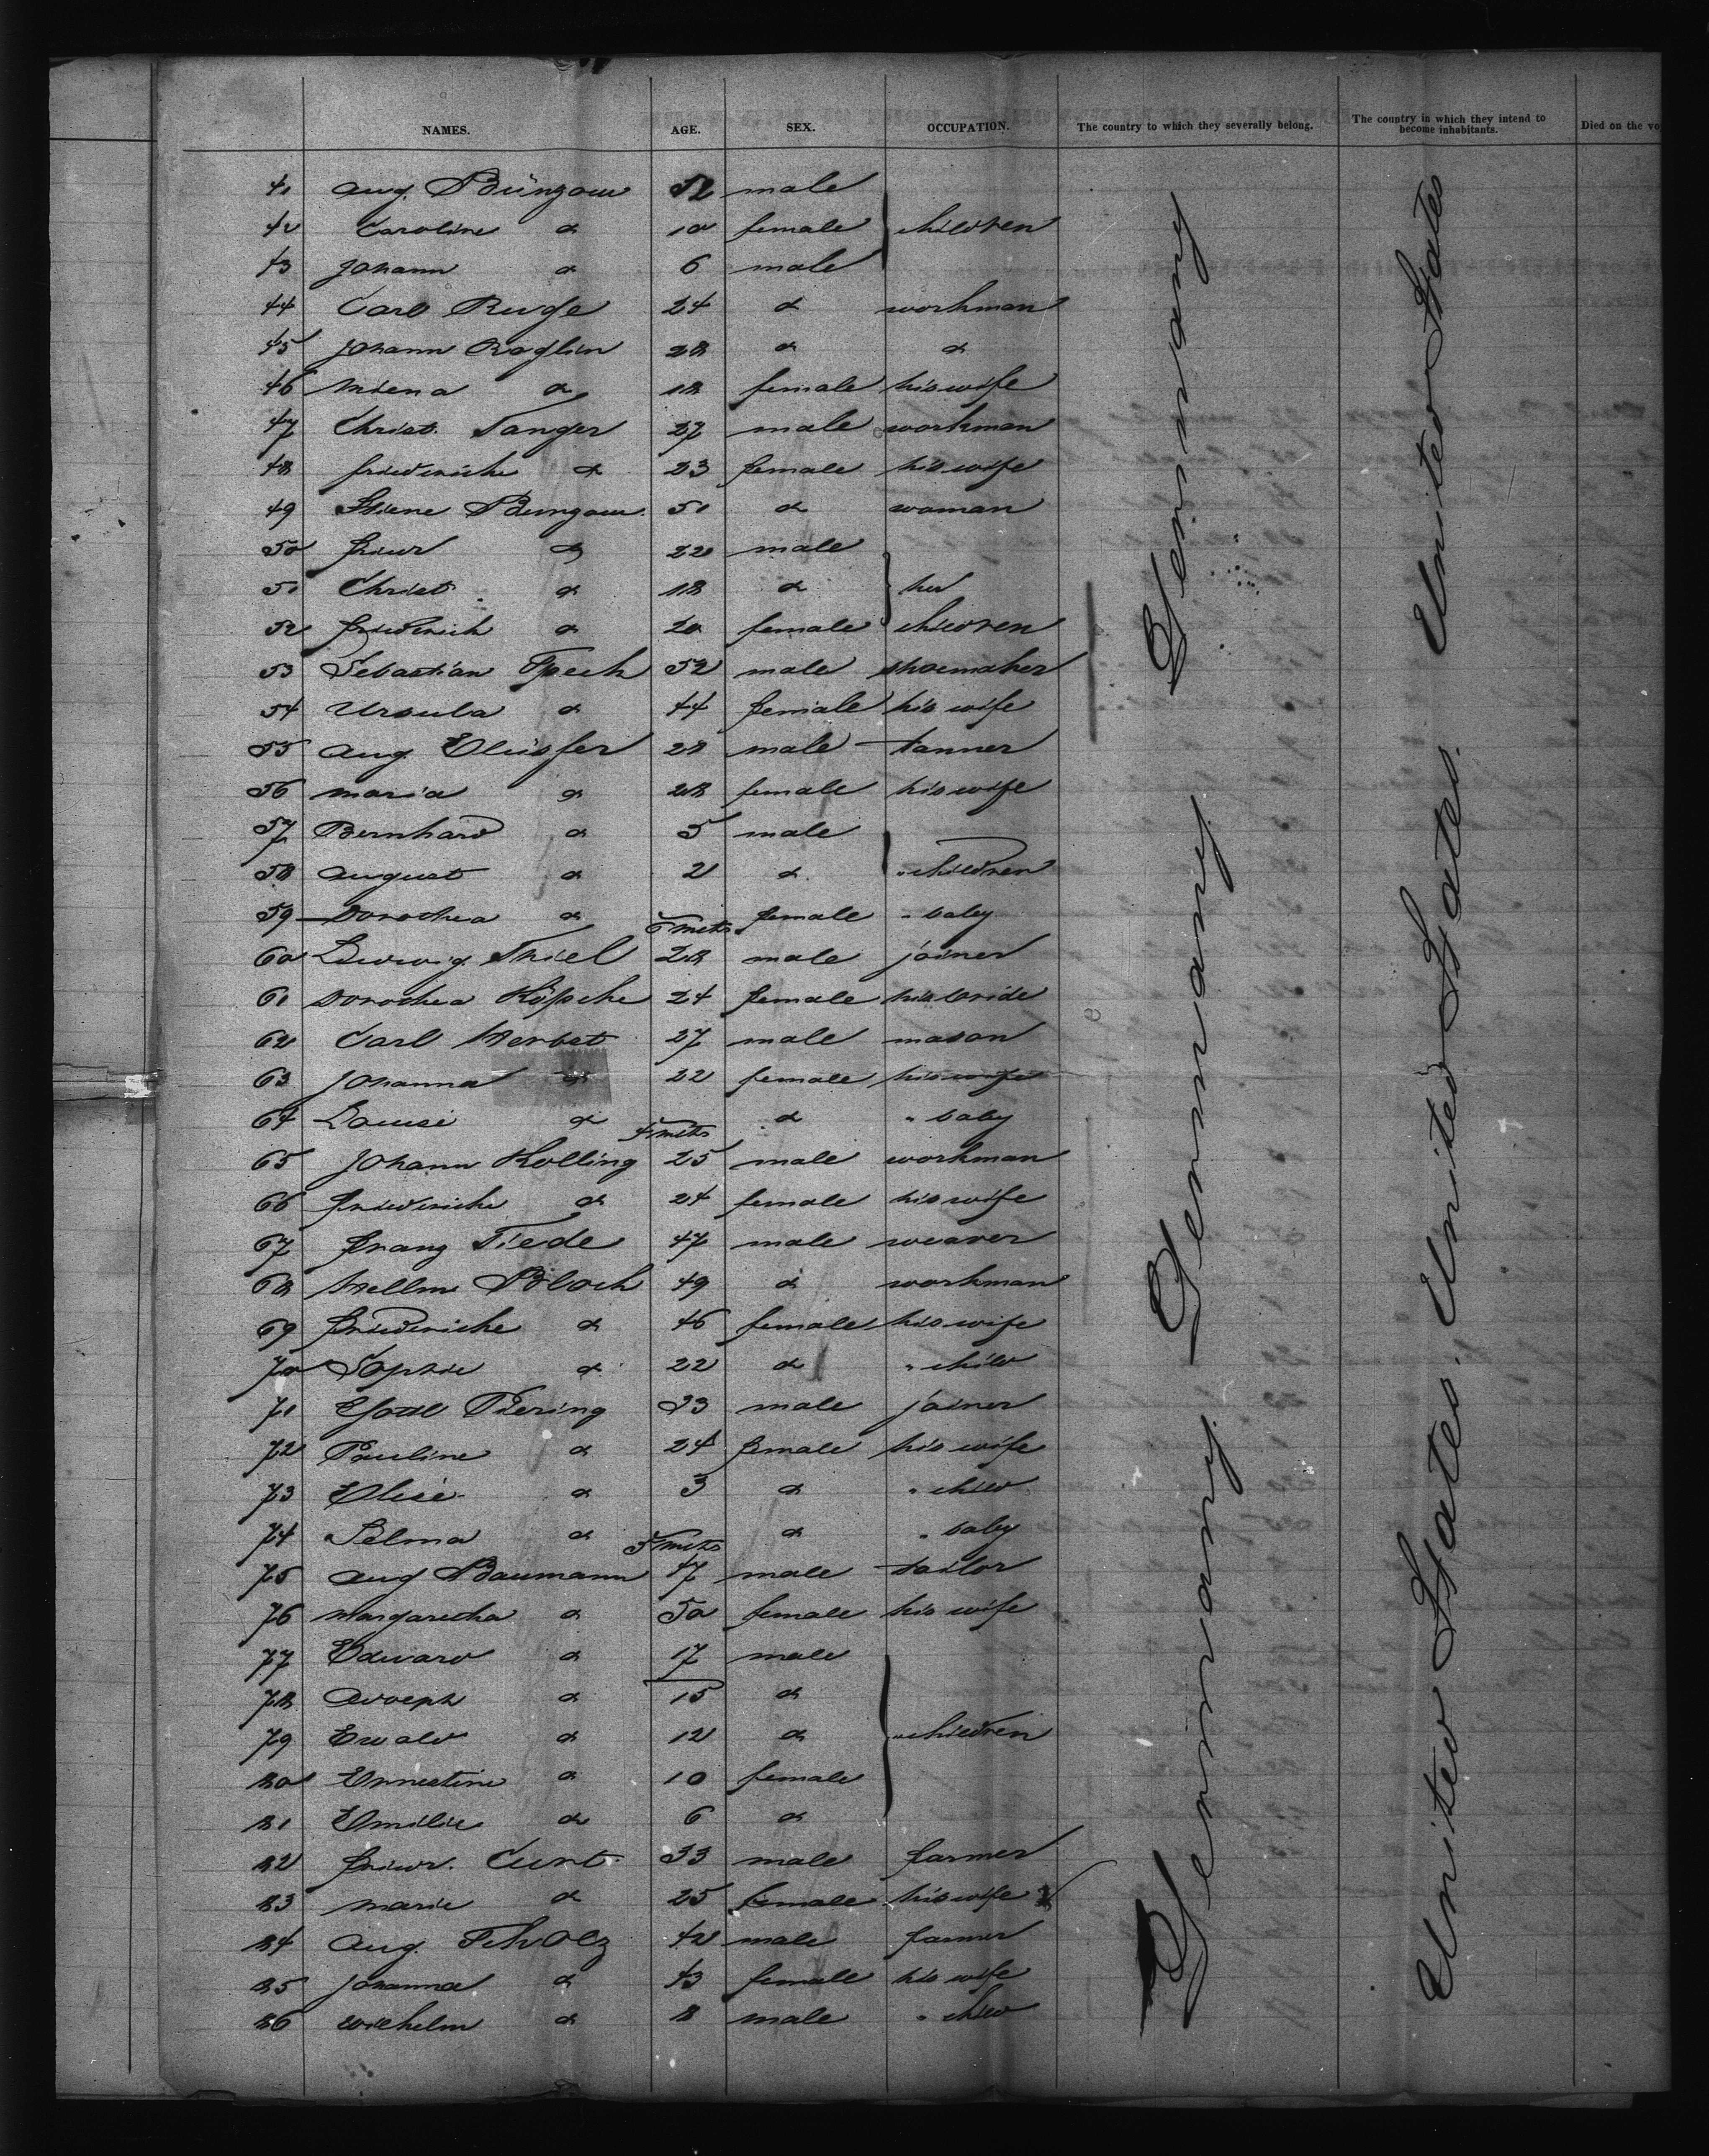 NAMES. AGE. SEX. OCCUPATION. The country to which they severally belong. The country in which they intend to become inhabitants. Died on the vo
41 Aug. Büngow male
42 Caroline do 10 female children
43 Johann do 6 male
44 Carl Ruge 24 do workman
45 Johann Roglin 28 do do
46 Miena do 18 female his wife
47 Christ. Tanger 27 male workman
48 Friederiche do 23 female his wife
49 Stiene Bungow 51 do woman
50 Friedr do 22 male
51 Christ. do 18 do her
52 Friederich do 20 female children
53 Sebastian Specht 52 male shoemaker
54 Ursula do 44 female his wife
55 Aug. 28 male tanner
56 Maria do 28 female his wife
57 Bernhard do 5 male
58 August do 2 do " children
59 Dorothea do 6 mths female " baby
60 Ludwig Thiel 28 male joiner
61 Dorothea Köpche 24 female his bride
62 Carl Herbst 27 male mason
63 Johanna do 22 female his wife
64 Louise do 4 mths do " baby
65 Johann Kolling 25 male workman
66 Friederiche do 24 female his wife
67 Franz Tiede 47 male weaver
68 Wellm Block 49 do workman
69 Friederiche do 46 female his wife
70 Sophie do 22 do " child
71 Bering 33 male joiner
72 Pauline do 24 female his wife
73 Elise do 3 do " child
74 Selma do 5 mths do " baby
75 Aug Baumann 47 male tailor
76 Margaretha do 50 female his wife
77 Edward do 17 male
78 Adolph do 15 do
79 Ewald do 12 do " children
80 Ernestine do 10 female
81 Emilie do 6 do
82 Friedr. Curt 33 male farmer
83 Marie do 25 female his wife
84 Aug. Scholz 42 male farmer
85 Johanna do 43 female his wife
86 Wilhelm do 8 male " child
Germany Germany Germany Germany
United States United States. United States. United States.